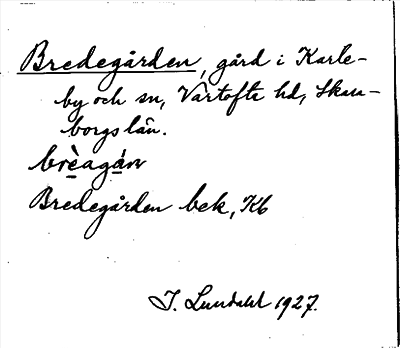 Bredegården, gård i Karle-
by och sn, Vartofta hd, Skara-
borgs län.
brèagán
Bredegården bek, Kb
J. Lundahl 1927.